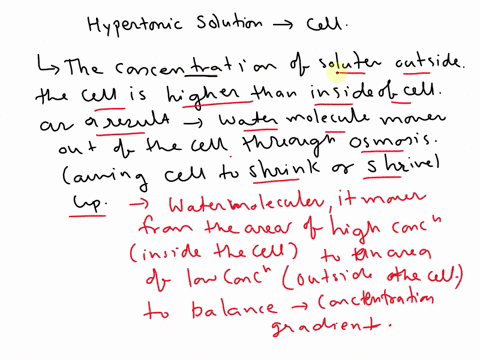 Hypertonic Solution → cell.
↳ The concentration of soluter outside.
the cell is higher than inside of cell.
as a result → water molecule mover
out of the cell through osmosis.
(causing cell to shrink or shrivel
up. → Water moleculer, it mover
from the area of high concⁿ
(inside the cell) to an area
of low concⁿ (outside the cell)
to balance → concentration
gradient.